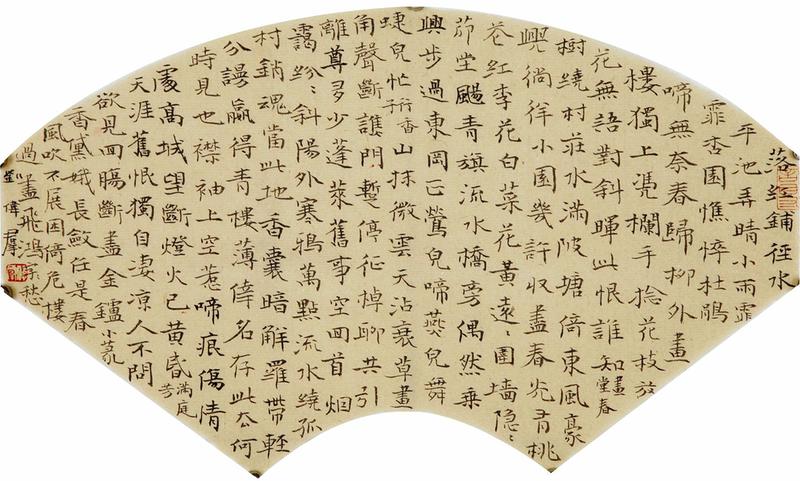 落紅鋪徑水
平池弄晴小雨霏
霏杏園憔悴杜鵑
啼無奈春歸柳外畫
樓獨上憑欄手撚花枝放
花無語對斜暉此恨誰知畫堂春
樹繞村莊水滿陂塘倚東風豪
興徜徉小園幾許收盡春光有桃
花紅李花白菜花黃遠〻圍墻隱〻
茆堂颺青旗流水橋旁偶然乘
興步過東岡正鶯兒啼燕兒舞
蜨兒忙行香子山抹微雲天沾衰草畫
角聲斷譙門暫停征棹聊共引
離尊多少蓬萊舊事空回首烟
靄紛〻斜陽外寒鴉萬點流水繞孤
村銷魂當此地香囊暗解羅帶輕
分謾贏得青樓薄倖名存此去何
時見也襟袖上空惹啼痕傷情
處高城望斷燈火已黃昏滿庭芳
天涯舊恨獨自淒涼人不問
欲見回腸斷盡金鑪小篆
香黛蛾長斂任是春
風吹不展困倚危樓
過盡飛鴻字〻愁